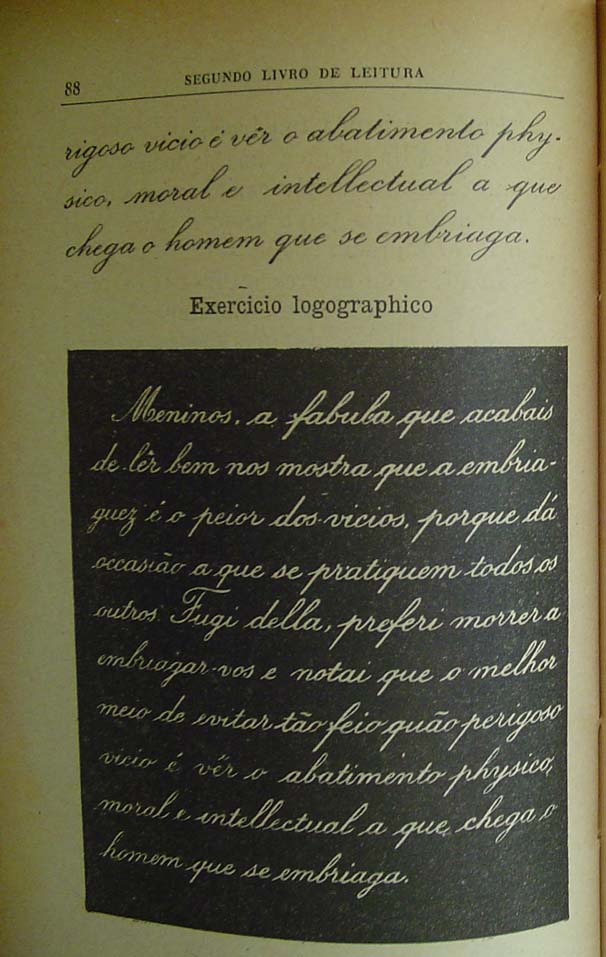 88
SEGUNDO LIVRO DE LEITURA
rigoso vicio é vêr o abatimento phy-
sico, moral e intellectual a que
chega o homem que se embriaga.
Exercicio logographico
Meninos, a fabula que acabais
de lêr bem nos mostra que a embria-
guez é o peior dos vicios, porque dá
occasião a que se pratiquem todos os
outros. Fugi della, preferi morrer a
embriagar-vos e notai que o melhor
meio de evitar tão feio quão perigoso
vicio é vêr o abatimento physico,
moral e intellectual a que chega o
homem que se embriaga.